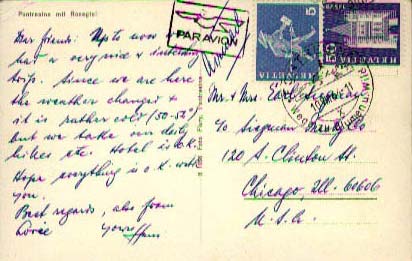 Pontresina mit Roseggtal
Dear friends: Up to now we
had a very nice & interesting
trip. Since we are here
the weather changed &
it is rather cold (50-52°)
but we take our daily
hikes etc. Hotel is o.k.
Hope everything is o.k. with
you.
Best regards, also from
Yours
PAR AVION
5
HELVETIA
50
HELVETIA
Mr. & Mrs.
c/o
120 S. Clinton St.
Chicago, Ill. 60606
U.S.A.